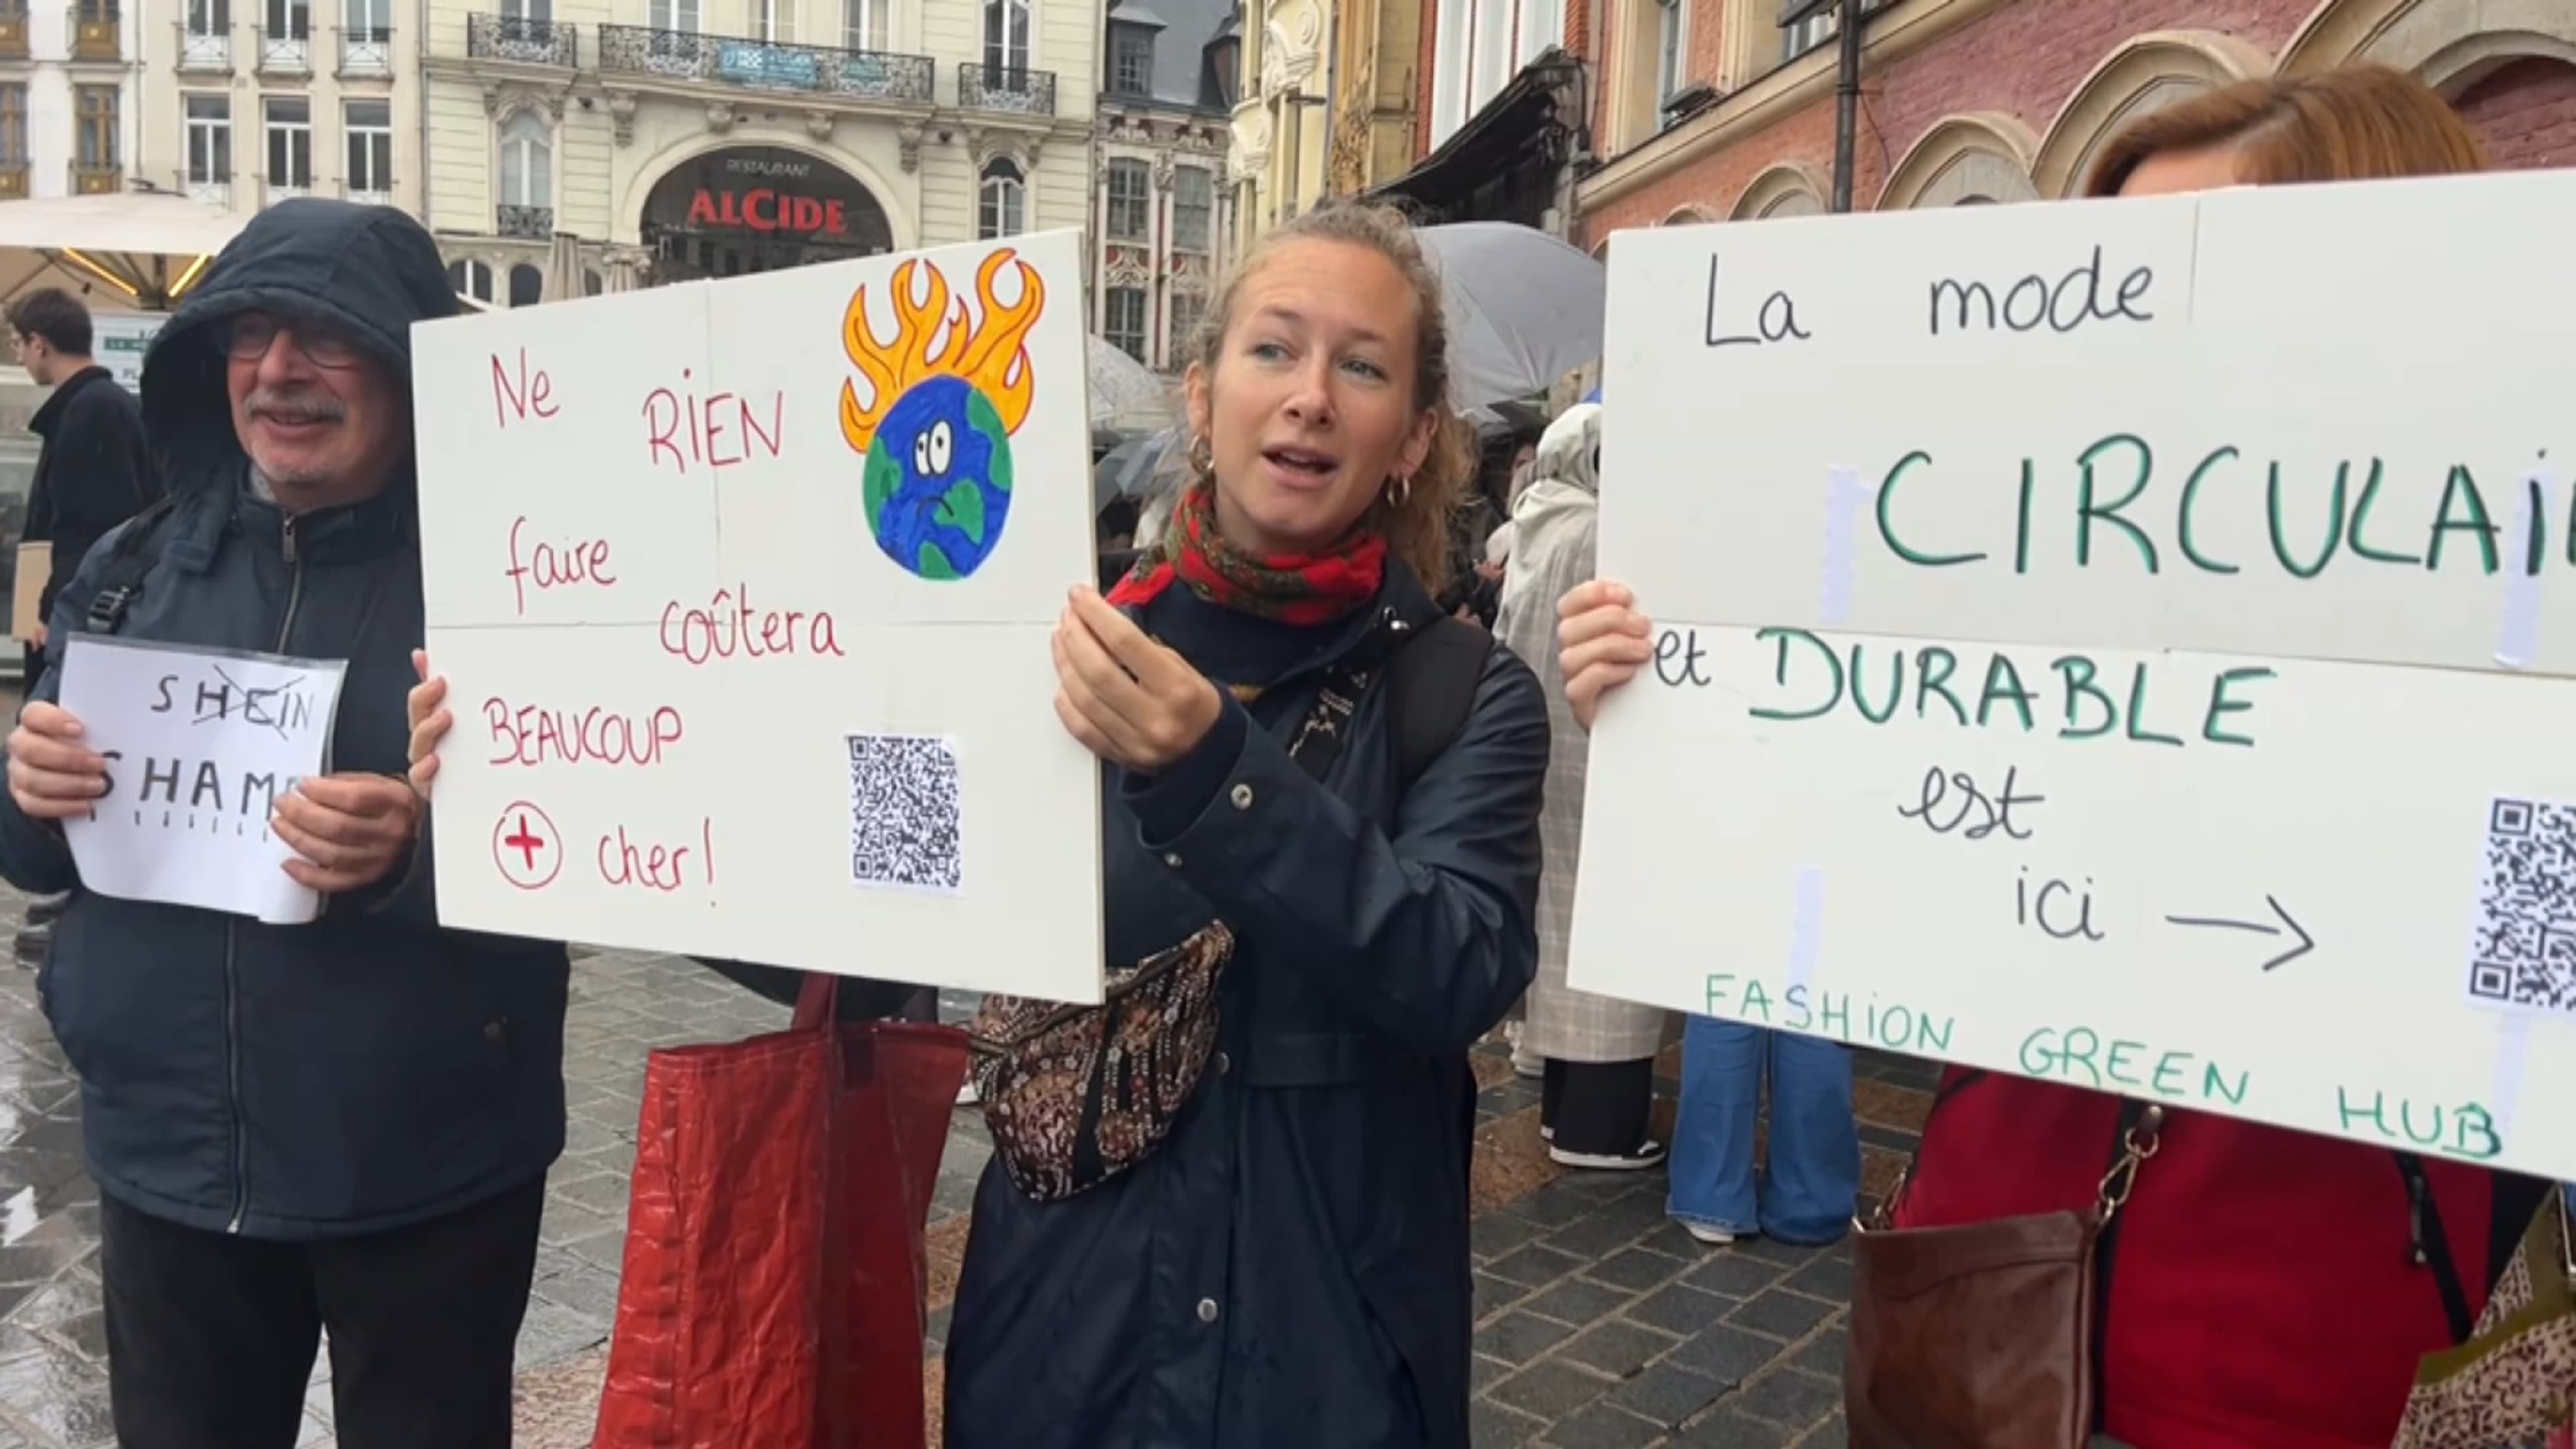 RESTAURANT
ALCIDE
SHEIN
SHAM
Ne
RIEN
faire
coûtera
BEAUCOUP
+ cher!
La mode
CIRCULAI
et DURABLE
est
ici →
FASHION GREEN HUB